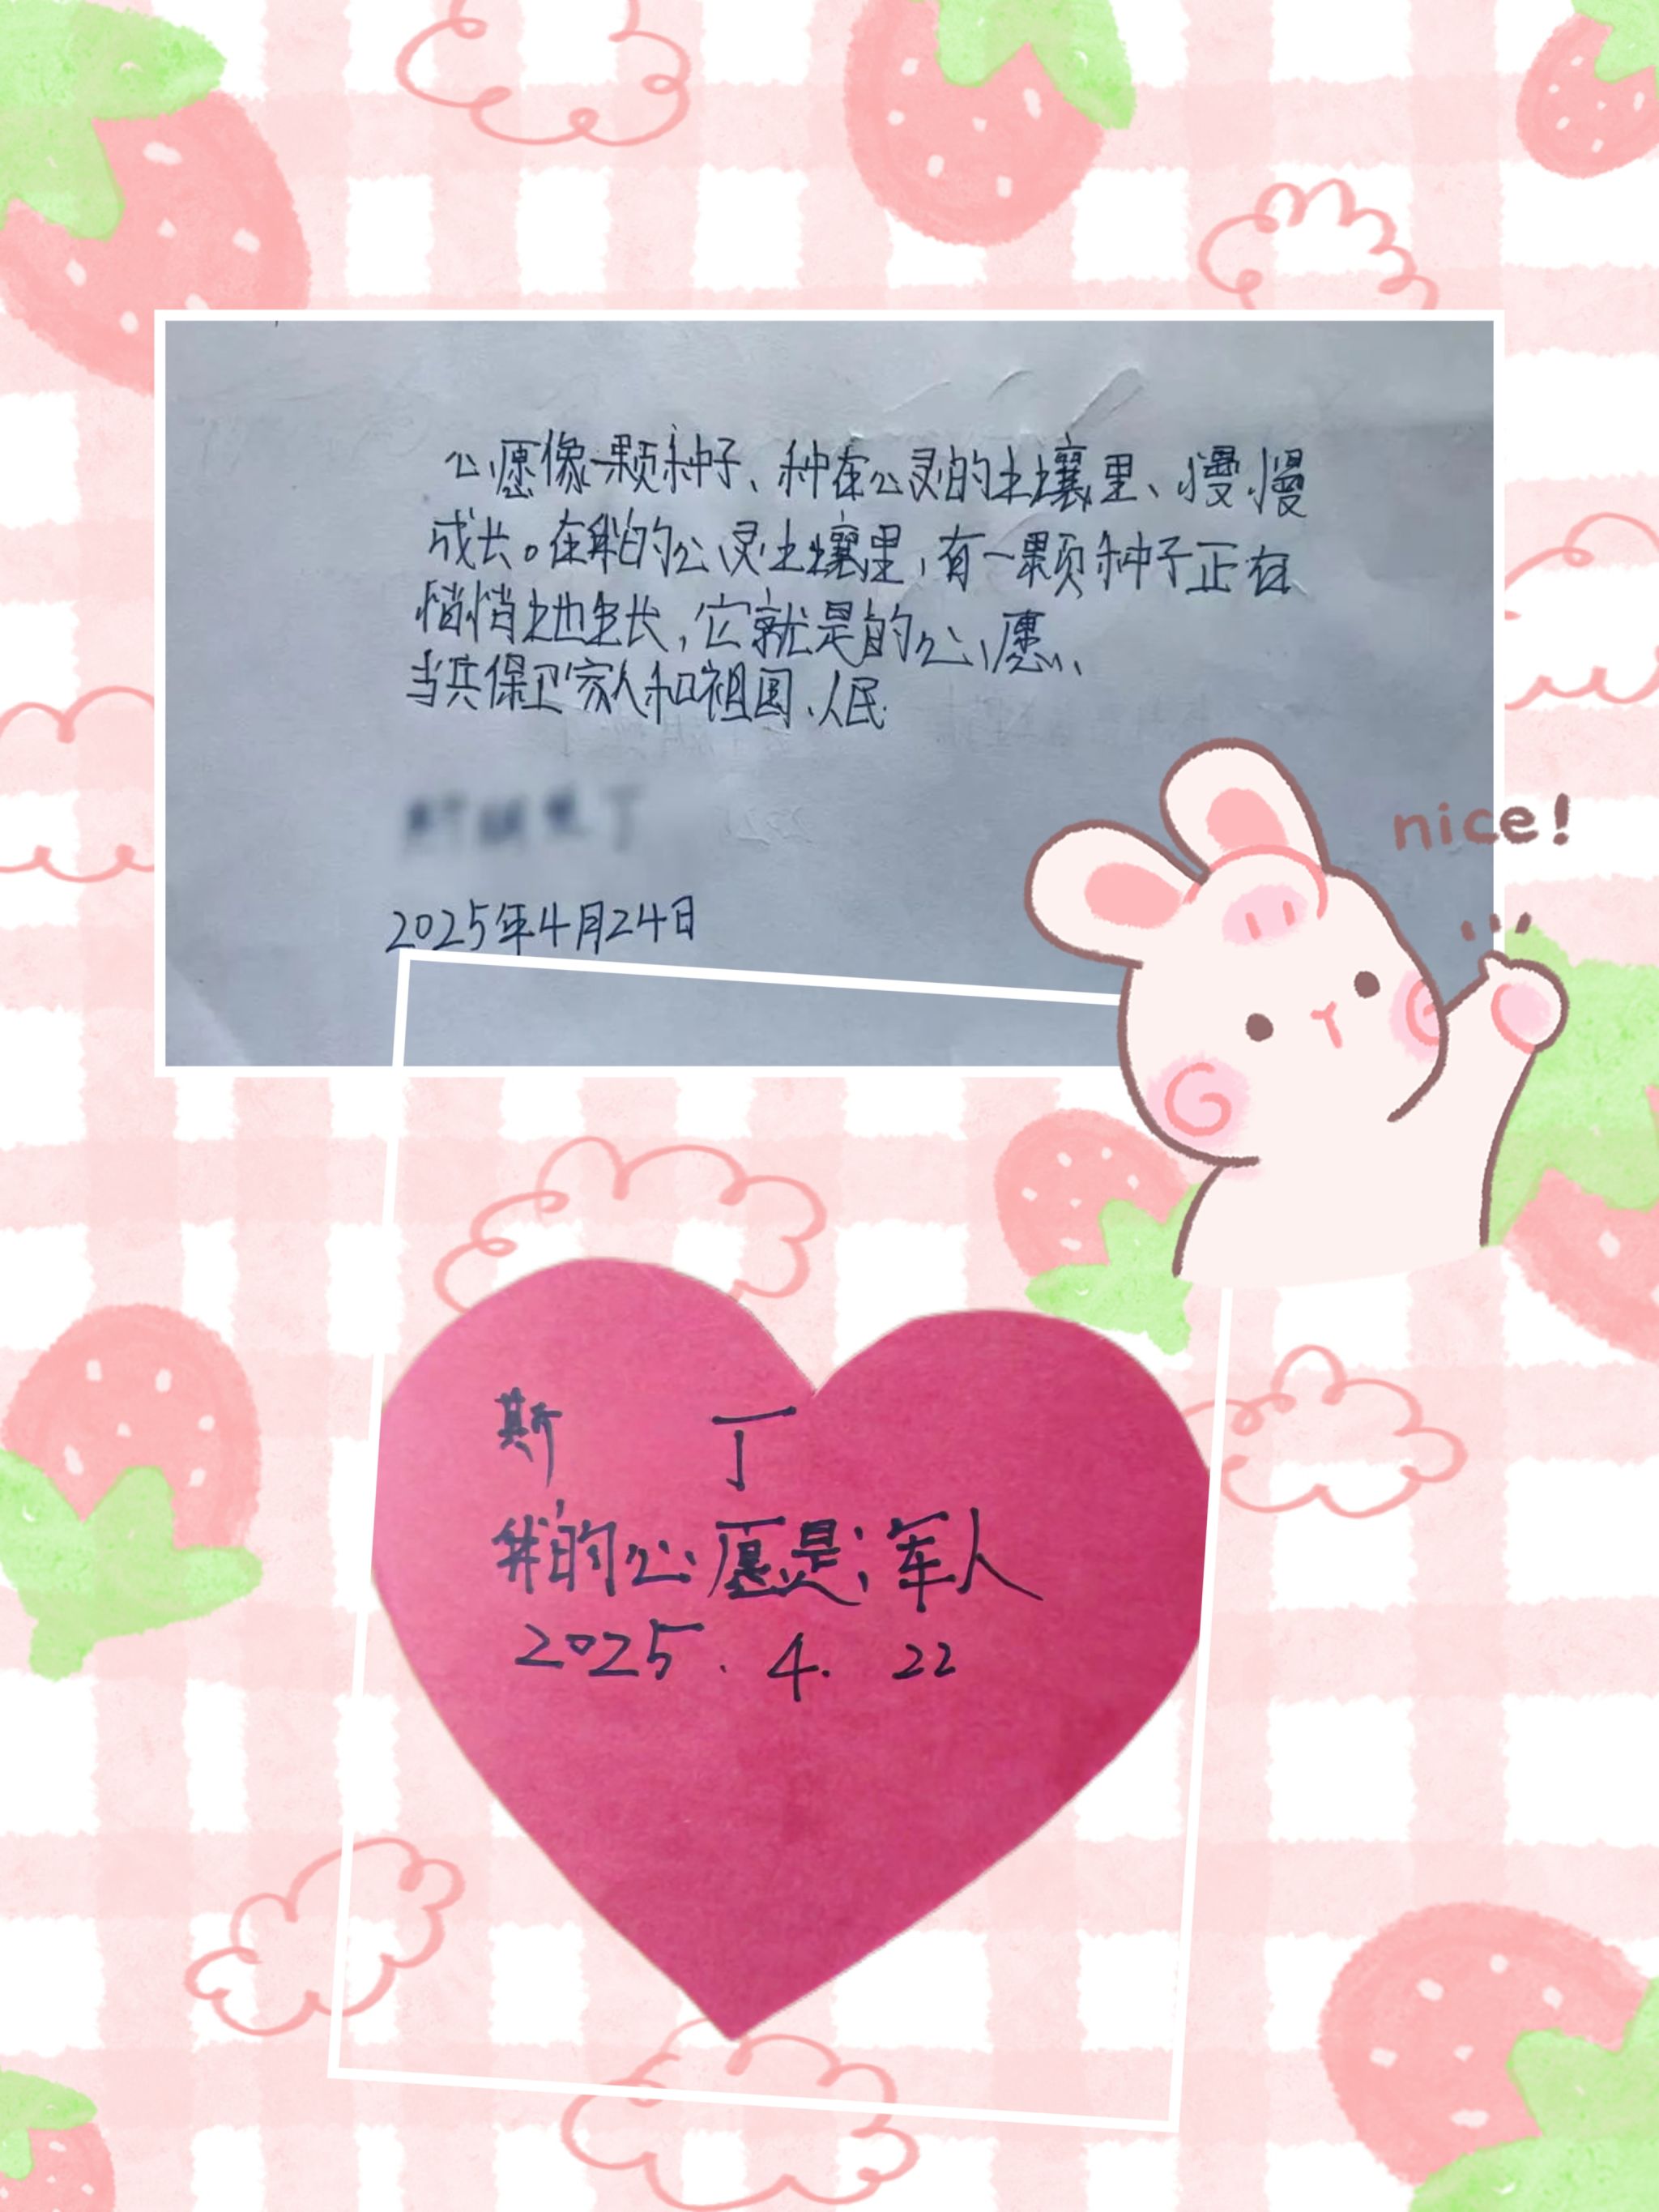 心愿像一颗种子、种在心灵的土壤里、慢慢
成长。在我的心灵土壤里,有一颗种子正在
悄悄地生长,它就是的心愿、
当兵保卫家人和祖国、人民.
2025年4月24日
nice!
斯 丁
我的心愿是;军人
2025.4.22